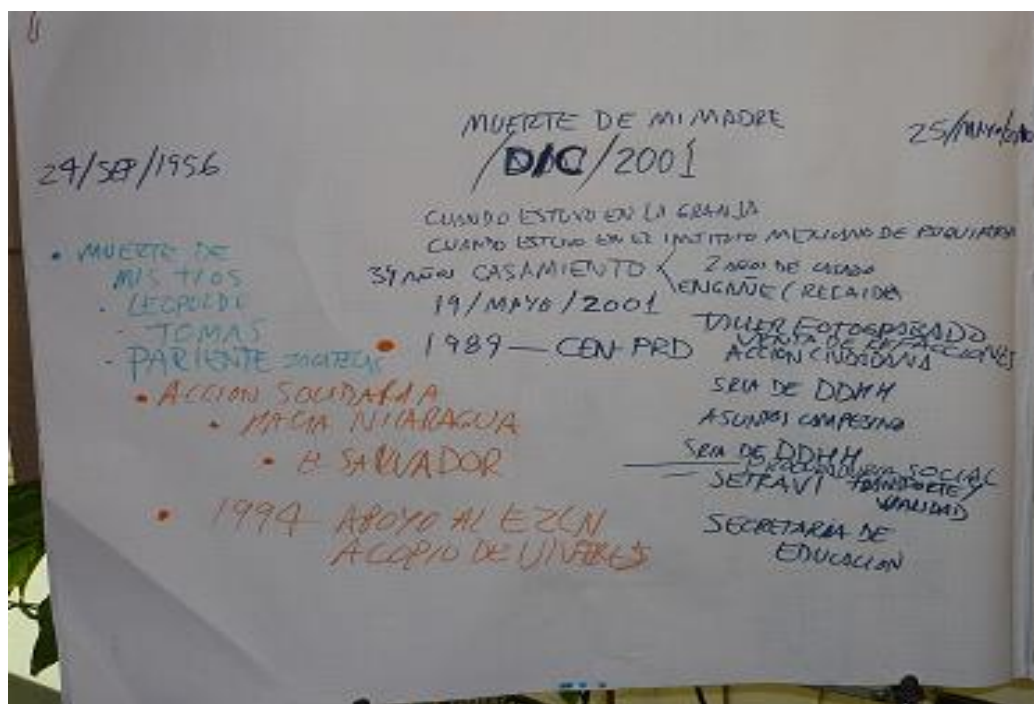 MUERTE DE MI MADRE
24/SEP/1956
/DIC/2001
25/MAYO/
CUANDO ESTUVO EN LA GRANJA
CUANDO ESTUVO EN EL INSTITUTO MEXICANO DE PSIQUIATRIA
39 AÑOS CASAMIENTO < 2 AÑOS DE CASADO
ENGAÑE (RECAIDA
19/MAYO/2001
• MUERTE DE
MIS TIOS
- LEOPOLDO
- TOMAS
- PARIENTE
• 1989 — CEN PRD
TALLER FOTOGRABADO
VENTA DE REFACCIONES
ACCION CIUDADANA
SRIA DE DDHH
ASUNTOS CAMPESINO
SRIA DE DDHH
PROCURADURIA SOCIAL
SETRAVI TRANSPORTE Y
VIALIDAD
SECRETARIA DE
EDUCACION
• ACCION SOLIDARIA
• HACIA NICARAGUA
• EL SALVADOR
• 1994 APOYO AL EZLN
ACOPIO DE VIVERES